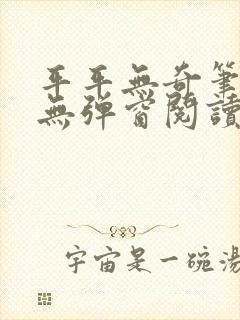 平平無奇筆
無彈窗閱讀
宇宙是一碗湯